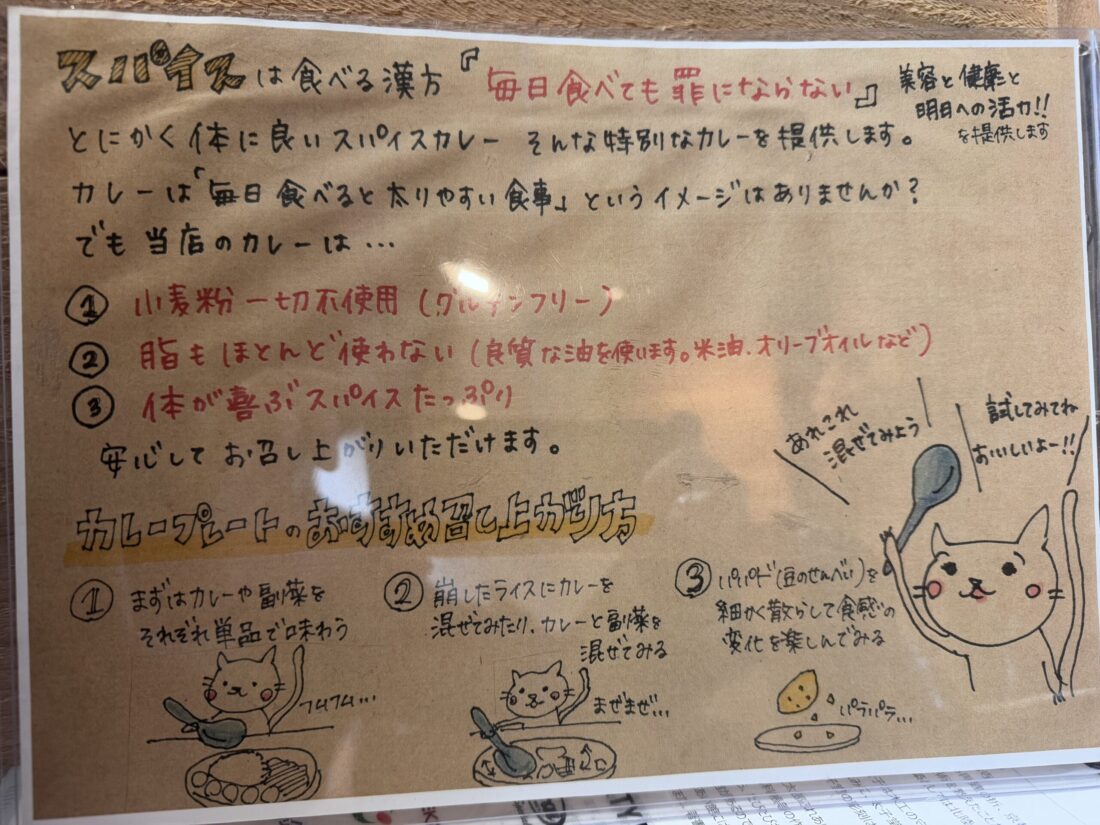 スパイスは食べる漢方『毎日食べても罪にならない』
美容と健康と
明日への活力!!
を提供します
とにかく体に良いスパイスカレー そんな特別なカレーを提供します。
カレーは「毎日食べると太りやすい食事」というイメージはありませんか?
でも当店のカレーは…
① 小麦粉一切不使用(グルテンフリー)
② 脂もほとんど使わない(良質な油を使います。米油、オリーブオイルなど)
③ 体が喜ぶスパイスたっぷり
安心してお召し上がりいただけます。
あれこれ
混ぜてみよう
試してみてね
おいしいよー!!
カレープレートのおすすめ召し上がり方
① まずはカレーや副菜を
それぞれ単品で味わう
フムフム…
② 崩したライスにカレーを
混ぜてみたり、カレーと副菜を
混ぜてみる
まぜまぜ…
③ パパド(豆のせんべい)を
細かく散らして食感の
変化を楽しんでみる
パラパラ…